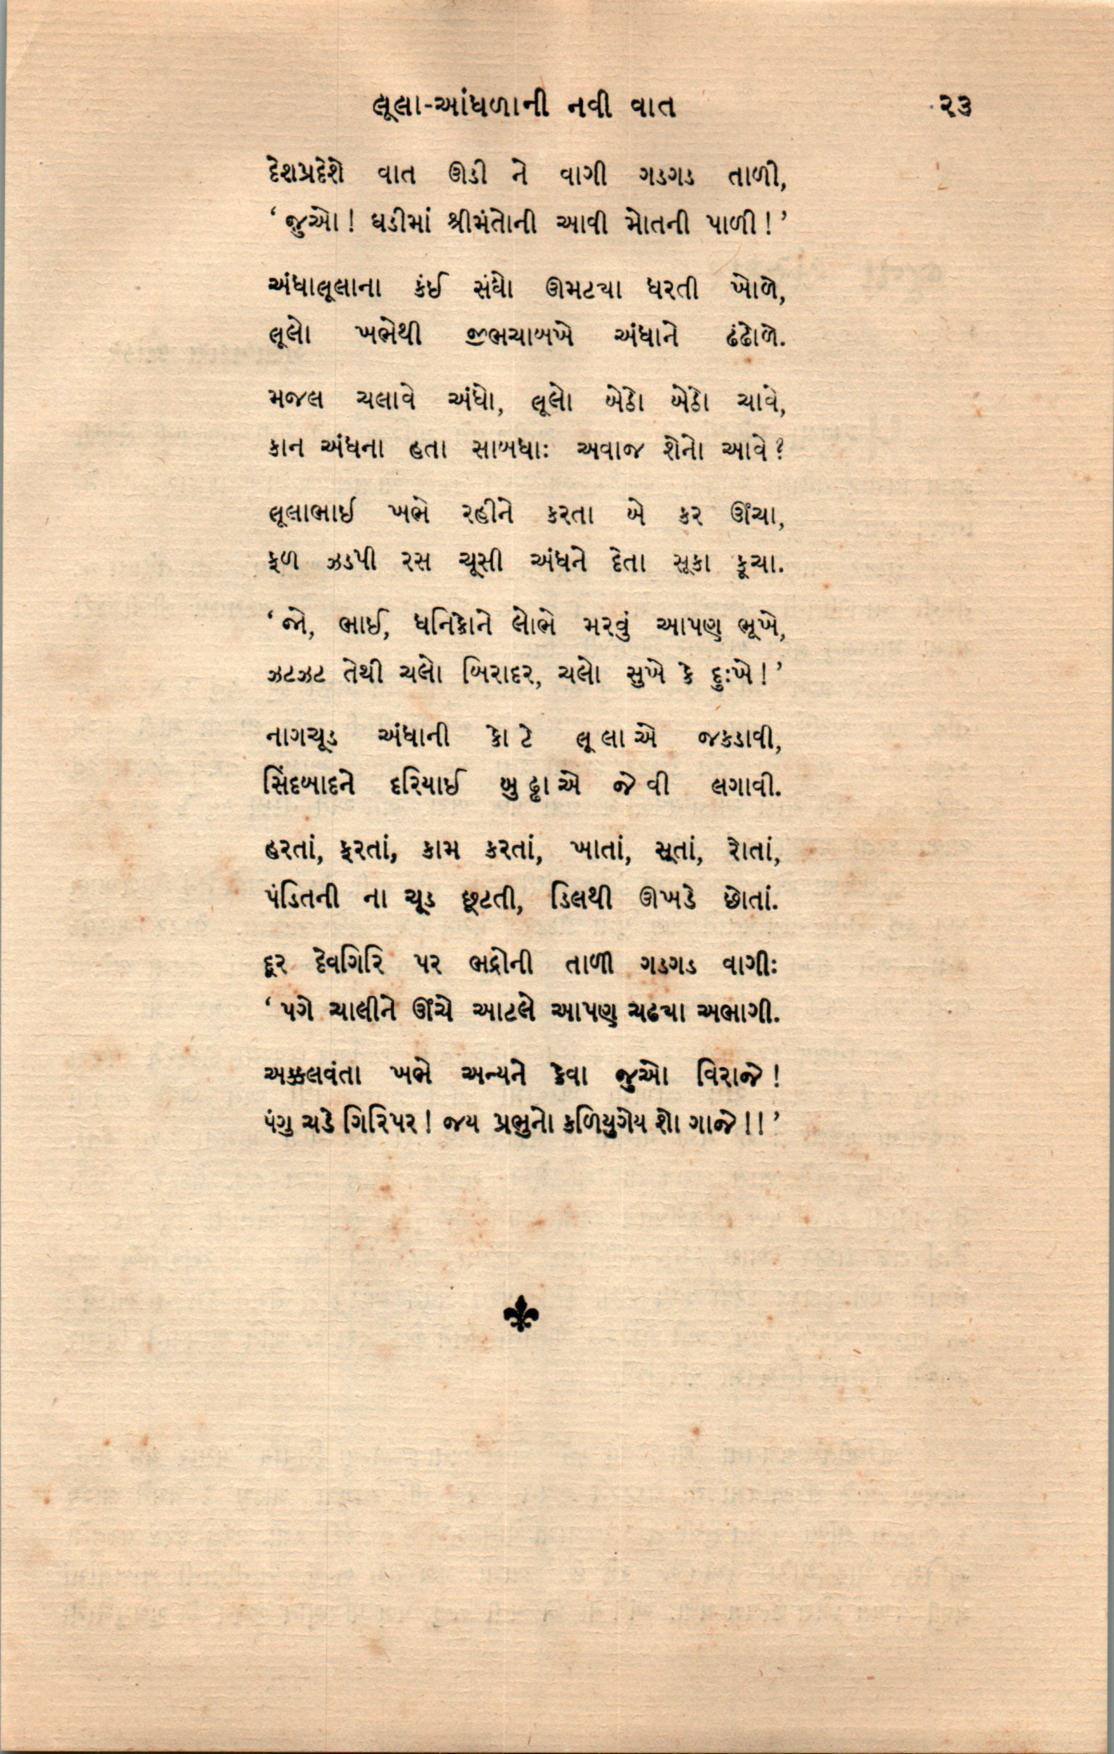 લૂલા-આંધળાની નવી વાત ૨૩
દેશપ્રદેશે વાત ઊડી ને વાગી ગડગડ તાળી,
‘જુઓ! ઘડીમાં શ્રીમંતોની આવી મોતની પાળી!’
અંધાલૂલાના કંઈ સંઘો ઊમટ્યા ધરતી ખોળે,
લૂલો ખભેથી જીભચાબખે અંધાને ઢંઢોળે.
મજલ ચલાવે અંધો, લૂલો બેઠો બેઠો ચાવે,
કાન અંધના હતા સાબધાઃ અવાજ શેનો આવે?
લૂલાભાઈ ખભે રહીને કરતા બે કર ઊંચા,
ફળ ઝડપી રસ ચૂસી અંધને દેતા સૂકા કૂચા.
‘જો, ભાઈ, ધનિકોને લોભે મરવું આપણ ભૂખે,
ઝટઝટ તેથી ચલો બિરાદર, ચલો સુખે કે દુઃખે!’
નાગચૂડ અંધાની કોટે લૂલાએ જકડાવી,
સિંદબાદને દરિયાઈ બુઢ્ઢાએ જેવી લગાવી.
હરતાં, ફરતાં, કામ કરતાં, ખાતાં, સૂતાં, રોતાં,
પંડિતની ના ચૂડ છૂટતી, ડિલથી ઊખડે છોતાં.
દૂર દેવગિરિ પર ભદ્રોની તાળી ગડગડ વાગીઃ
‘પગે ચાલીને ઊંચે આટલે આપણ ચઢ્યા અભાગી.
અક્કલવંતા ખભે અન્યને કેવા જુઓ વિરાજે!
પંગુ ચડે ગિરિપર! જય પ્રભુનો કળિયુગેય શો ગાજે!!’